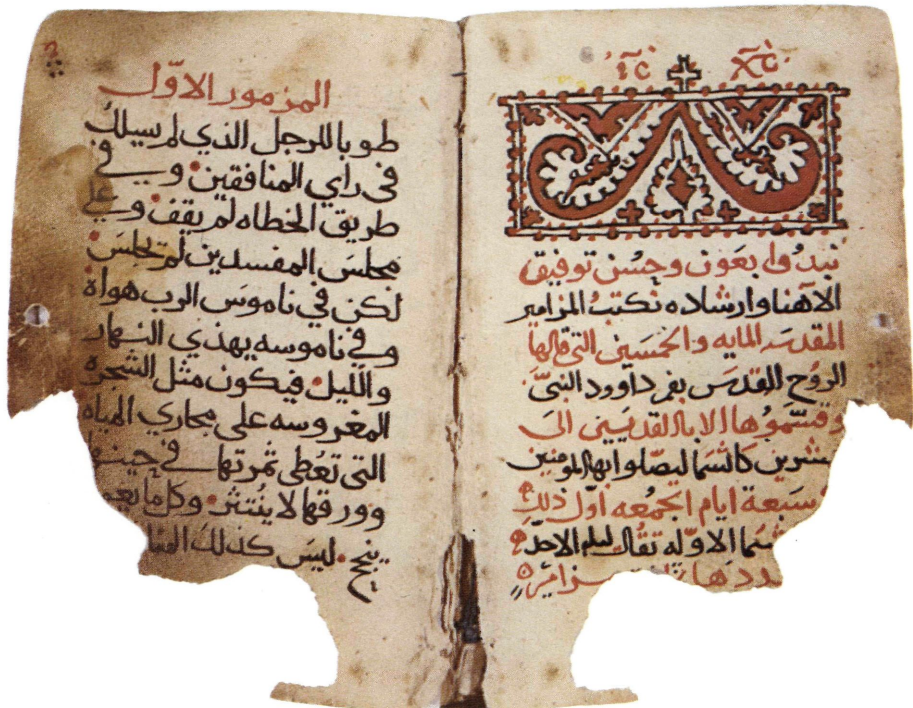 ıc̅ x̅c
نبدوا بعون وحسن توفيق
الاهنا وارشاده نكتب المزامير
المقدسه المايه والخمسين التي قالها
الروح القدس بفم داوود النبي
وقسموها الابا القديسين الى
عشرين كاتسما ليصلوا بها المومنين
سبعة ايام الجمعه اول ذلك
الاوله تقال ليلة الاحد
المزمور الاوّل
طوبا للرجل الذي لم يسلك
في راي المنافقين وفي
طريق الخطاه لم يقف وعلي
مجلس المفسدين لم يجلس
لكن في ناموس الرب هواه
وفي ناموسه يهذي النهار
والليل فيكون مثل الشجره
المغروسه على مجاري المياه
التي تعطي ثمرتها في حينها
وورقها لا ينتثر وكل ما يعم
ينجح ليس كذلك المنا